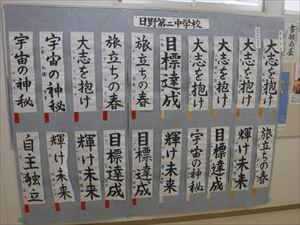 日野第二中学校
大志を抱け
大志を抱け
大志を抱け
大志を抱け
目標達成
旅立ちの春
旅立ちの春
大志を抱け
宇宙の神秘
宇宙の神秘
旅立ちの春
輝け未来
目標達成
宇宙の神秘
輝け未来
目標達成
目標達成
輝け未来
輝け未来
自主独立